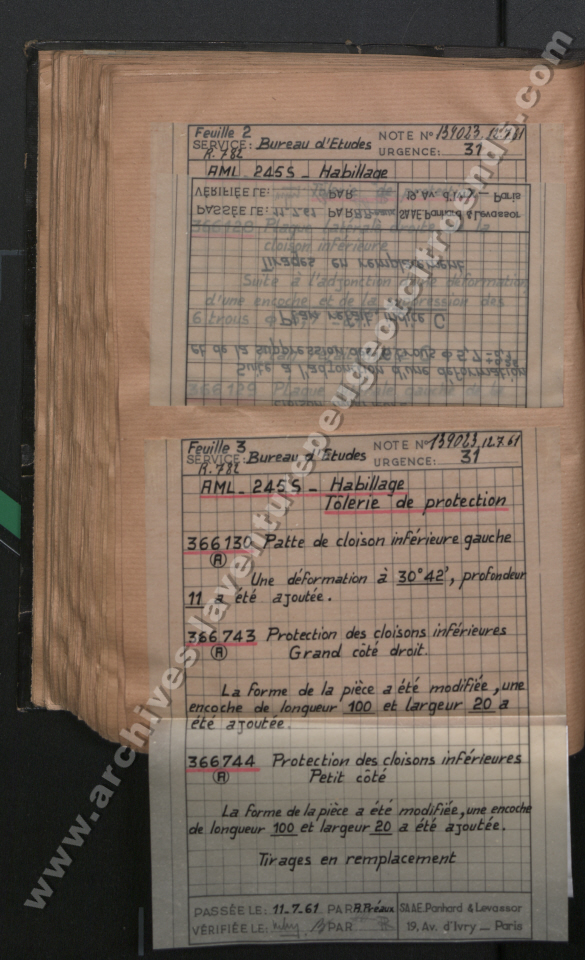 Feuille 2
SERVICE: Bureau d'Etudes
NOTE N° 139023. 12.7.61
R. 782
URGENCE: 31
AML_245S_ Habillage
VÉRIFIÉE LE: PAR 19, Av. d'Ivry _ Paris
PASSÉE LE: 11.7.61 PAR R.Préaux SAAE. Panhard & Levassor
Plaque latérale droite de la
cloison inférieure
Tirages en remplacement
Suite à l'adjonction d'une déformation
d'une encoche et de la suppression des
6 trous
Plan refait, indice C
et de la suppression des 6 trous ø 5,7
Suite à l'adjonction d'une déformation
366129 Plaque latérale gauche de la
Feuille 3
SERVICE: Bureau d'Etudes
NOTE N° 139023. 12.7.61
R. 782
URGENCE: 31
AML_245S_ Habillage
Tôlerie de protection
366130 Patte de cloison inférieure gauche
(A)
Une déformation à 30°42', profondeur
11 a été ajoutée.
366743 Protection des cloisons inférieures
(A) Grand côté droit.
La forme de la pièce a été modifiée, une
encoche de longueur 100 et largeur 20 a
été ajoutée.
366744 Protection des cloisons inférieures
(A) Petit côté
La forme de la pièce a été modifiée, une encoche
de longueur 100 et largeur 20 a été ajoutée.
Tirages en remplacement
PASSÉE LE: 11-7-61 PAR R.Préaux SAAE. Panhard & Levassor
VÉRIFIÉE LE: PAR 19, Av. d'Ivry _ Paris
www.archives.laventurepeugeotcitroends.com